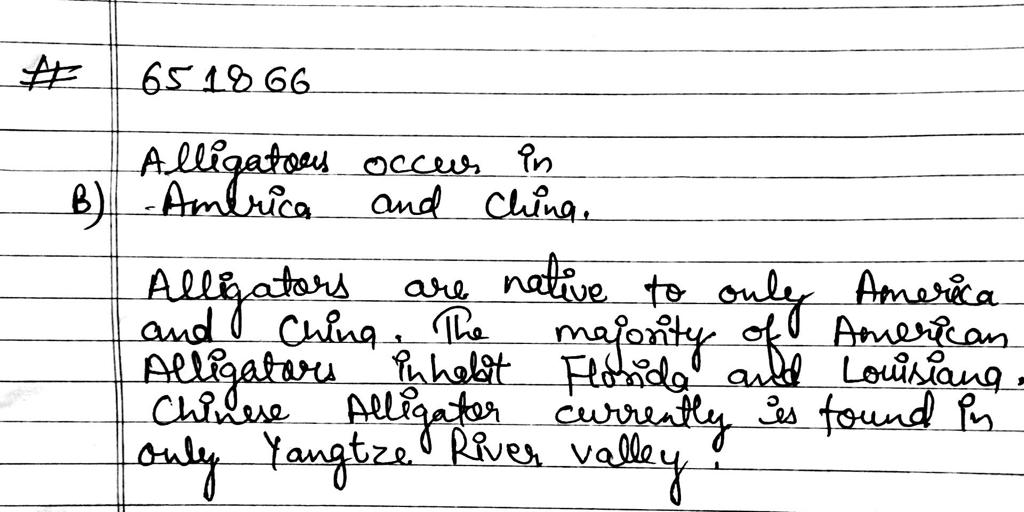 # 651866
Alligators occur in
B) -America and China.
Alligators are native to only America
and China. The majority of American
Alligators inhabit Florida and Louisiana.
Chinese Alligator currently is found in
only Yangtze River valley.